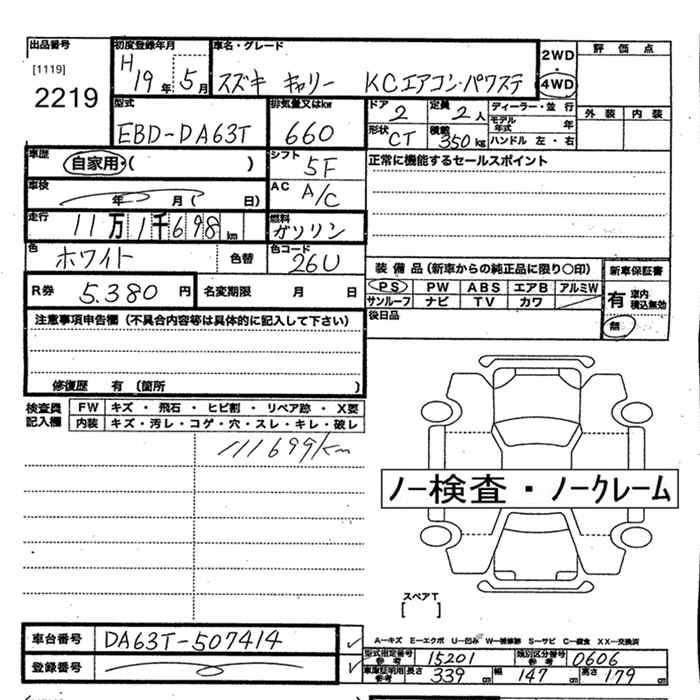 出品番号
[1119]
2219
初度登録年月
H 19年 5月
車名・グレード
スズキ キャリー KCエアコン・パワステ
2WD
4WD
評価点
外装 内装
型式
EBD-DA63T
排気量又はkw
660
ドア 2
定員 2人
ディーラー・並行
モデル年式 年
形状 CT
積載 350kg
ハンドル 左・右
車歴
自家用・( )
シフト
5F
正常に機能するセールスポイント
車検
年 月( 日)
AC
A/C
走行
11万1千698km
燃料
ガソリン
色
ホワイト
色替
色コード
26U
装備品(新車からの純正品に限り○印)
新車保証書
PS PW ABS エアB アルミW
サンルーフ ナビ TV カワ
有 車内積込無効
無
R券 5.380円
名変期限 月 日
後日品
注意事項申告欄(不具合内容等は具体的に記入して下さい)
修復歴 有〔箇所 〕
検査員記入欄
FW キズ・飛石・ヒビ割・リペア跡・X要
内装 キズ・汚レ・コゲ・穴・スレ・キレ・破レ
111699km
ノー検査・ノークレーム
スペアT
[ ]
車台番号 DA63T-507414
A−キズ E−エクボ U−凹み W−補修跡 S−サビ C−腐食 XX−交換済
型式指定番号参考 15201
類別区分番号参考 0606
登録番号
車庫証明用参考 長さ 339cm 幅 147cm 高さ 179cm